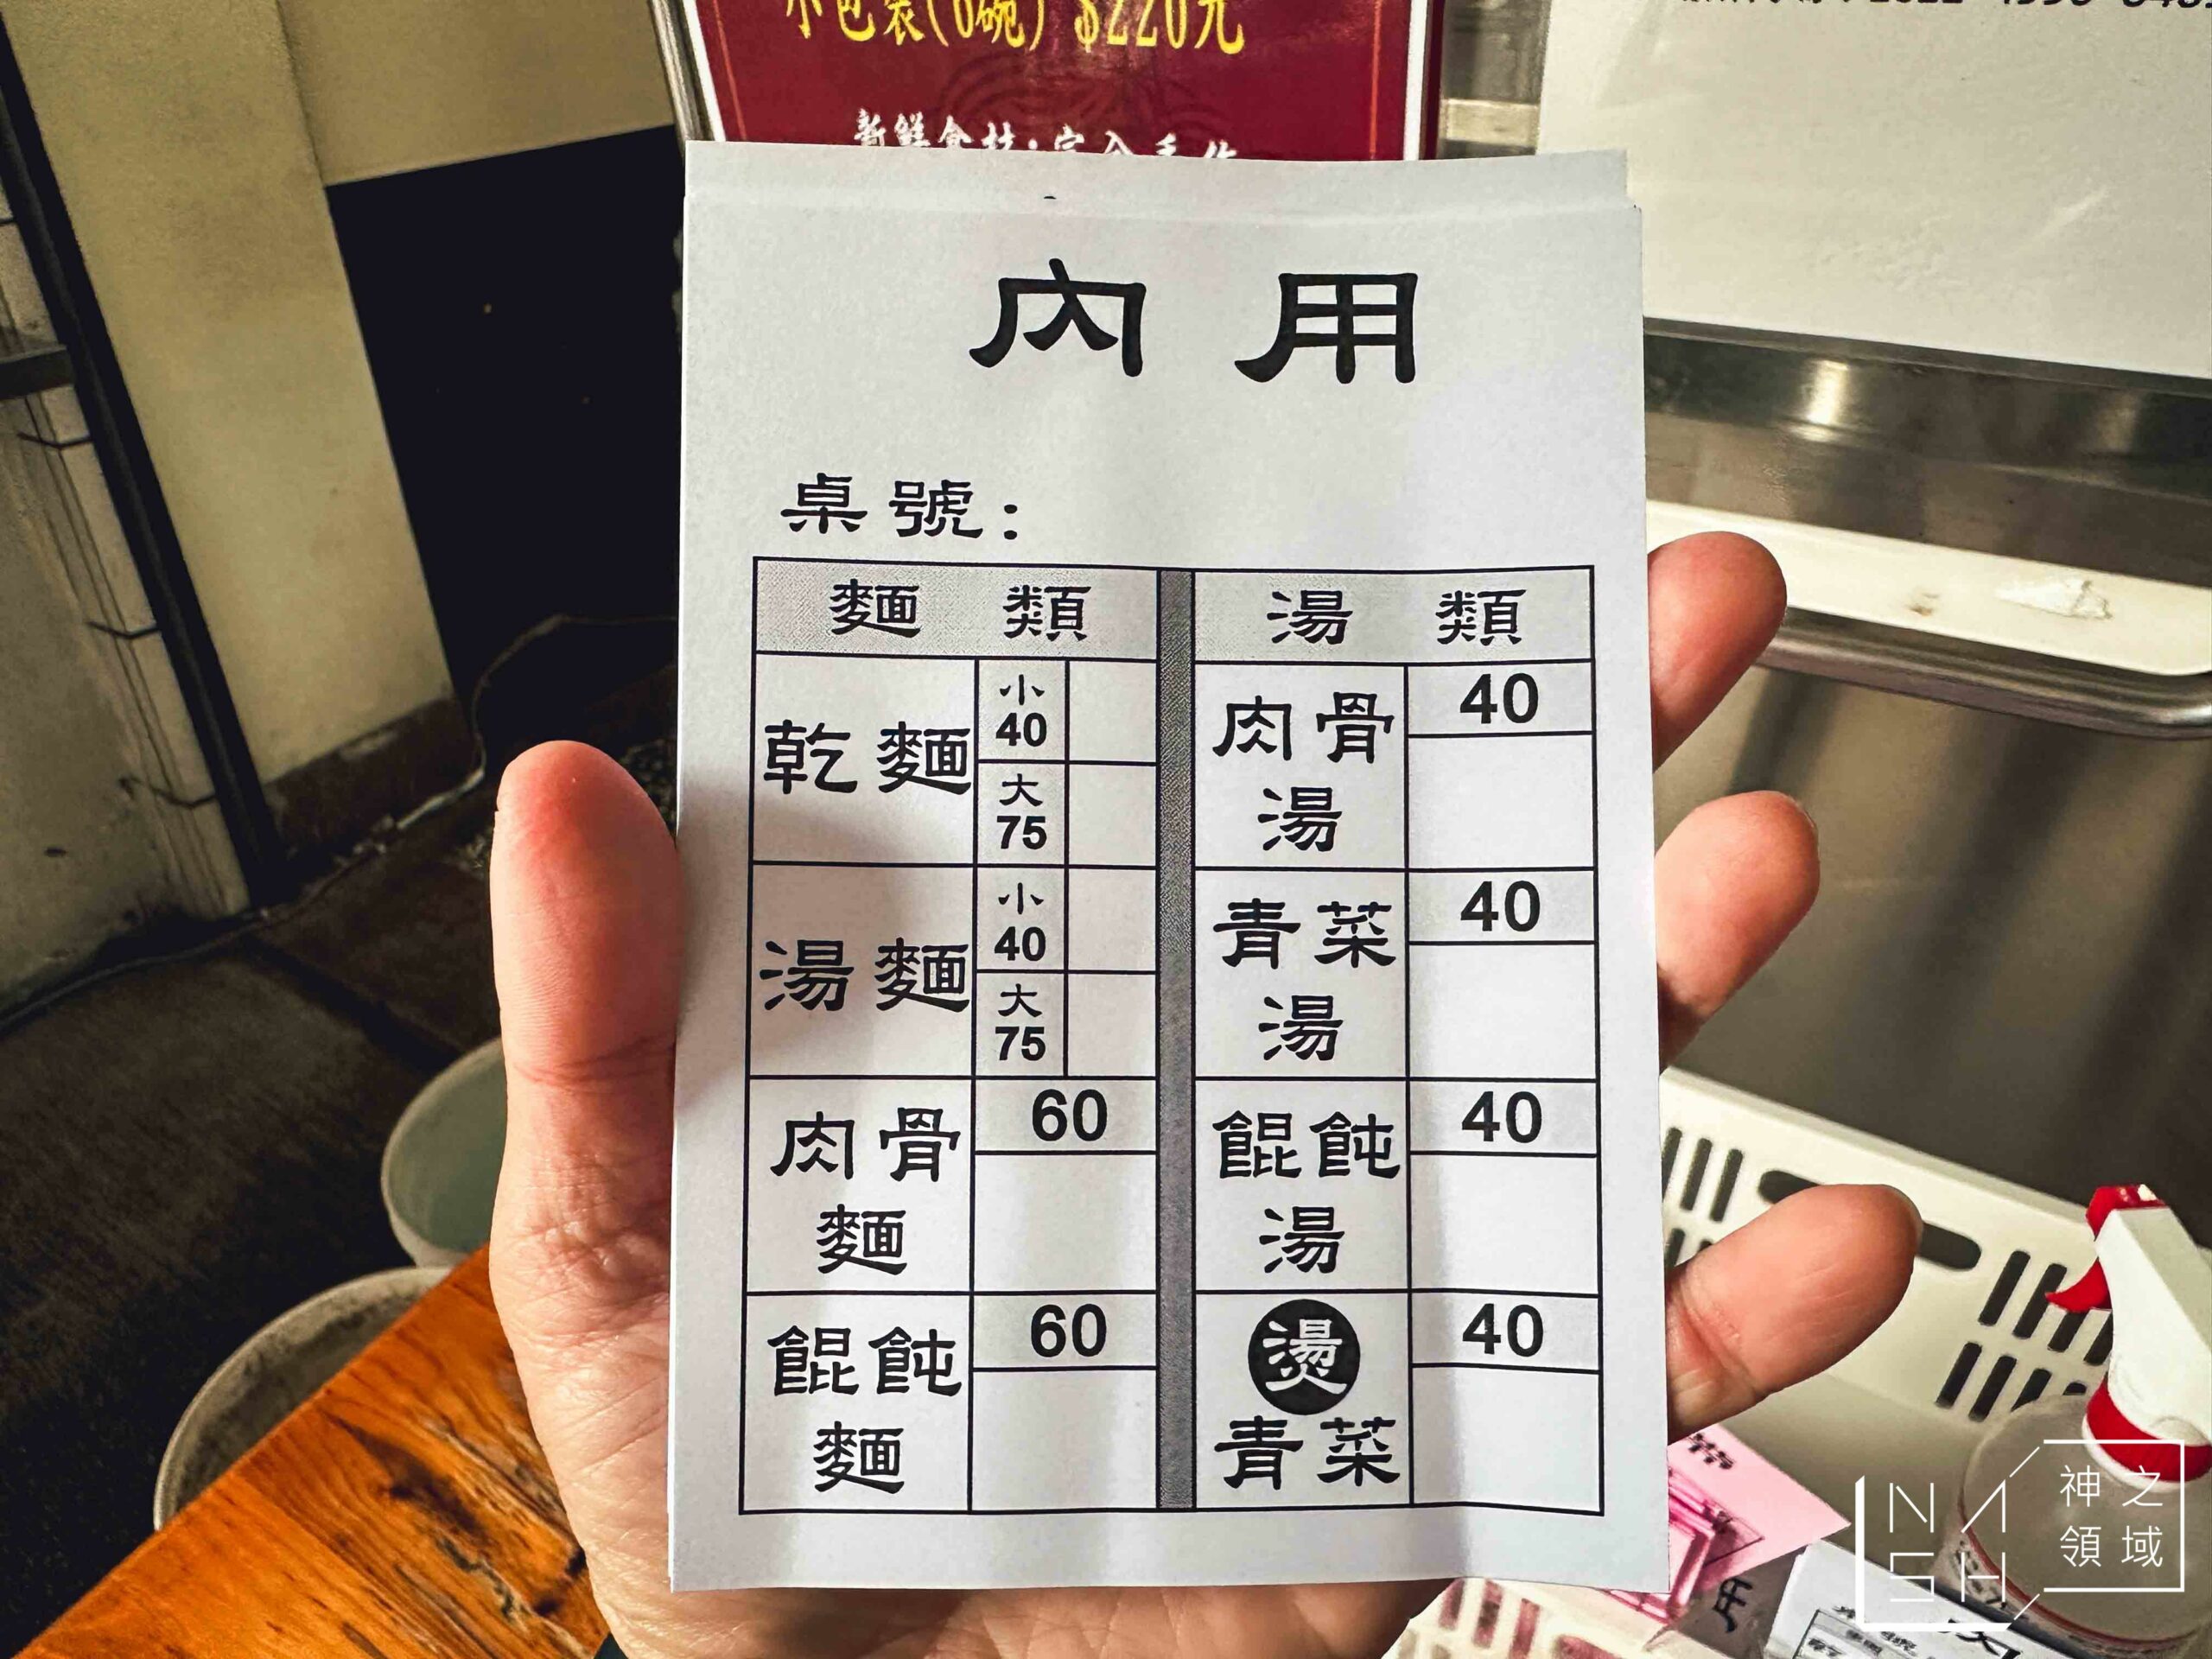 小包裝(6碗) $220元
內 用
桌號:
麵 類
乾麵
小
40
大
75
湯麵
小
40
大
75
肉骨
麵
60
餛飩
麵
60
湯 類
肉骨
湯
40
青菜
湯
40
餛飩
湯
40
燙
青菜
40
NASH
神之
領域